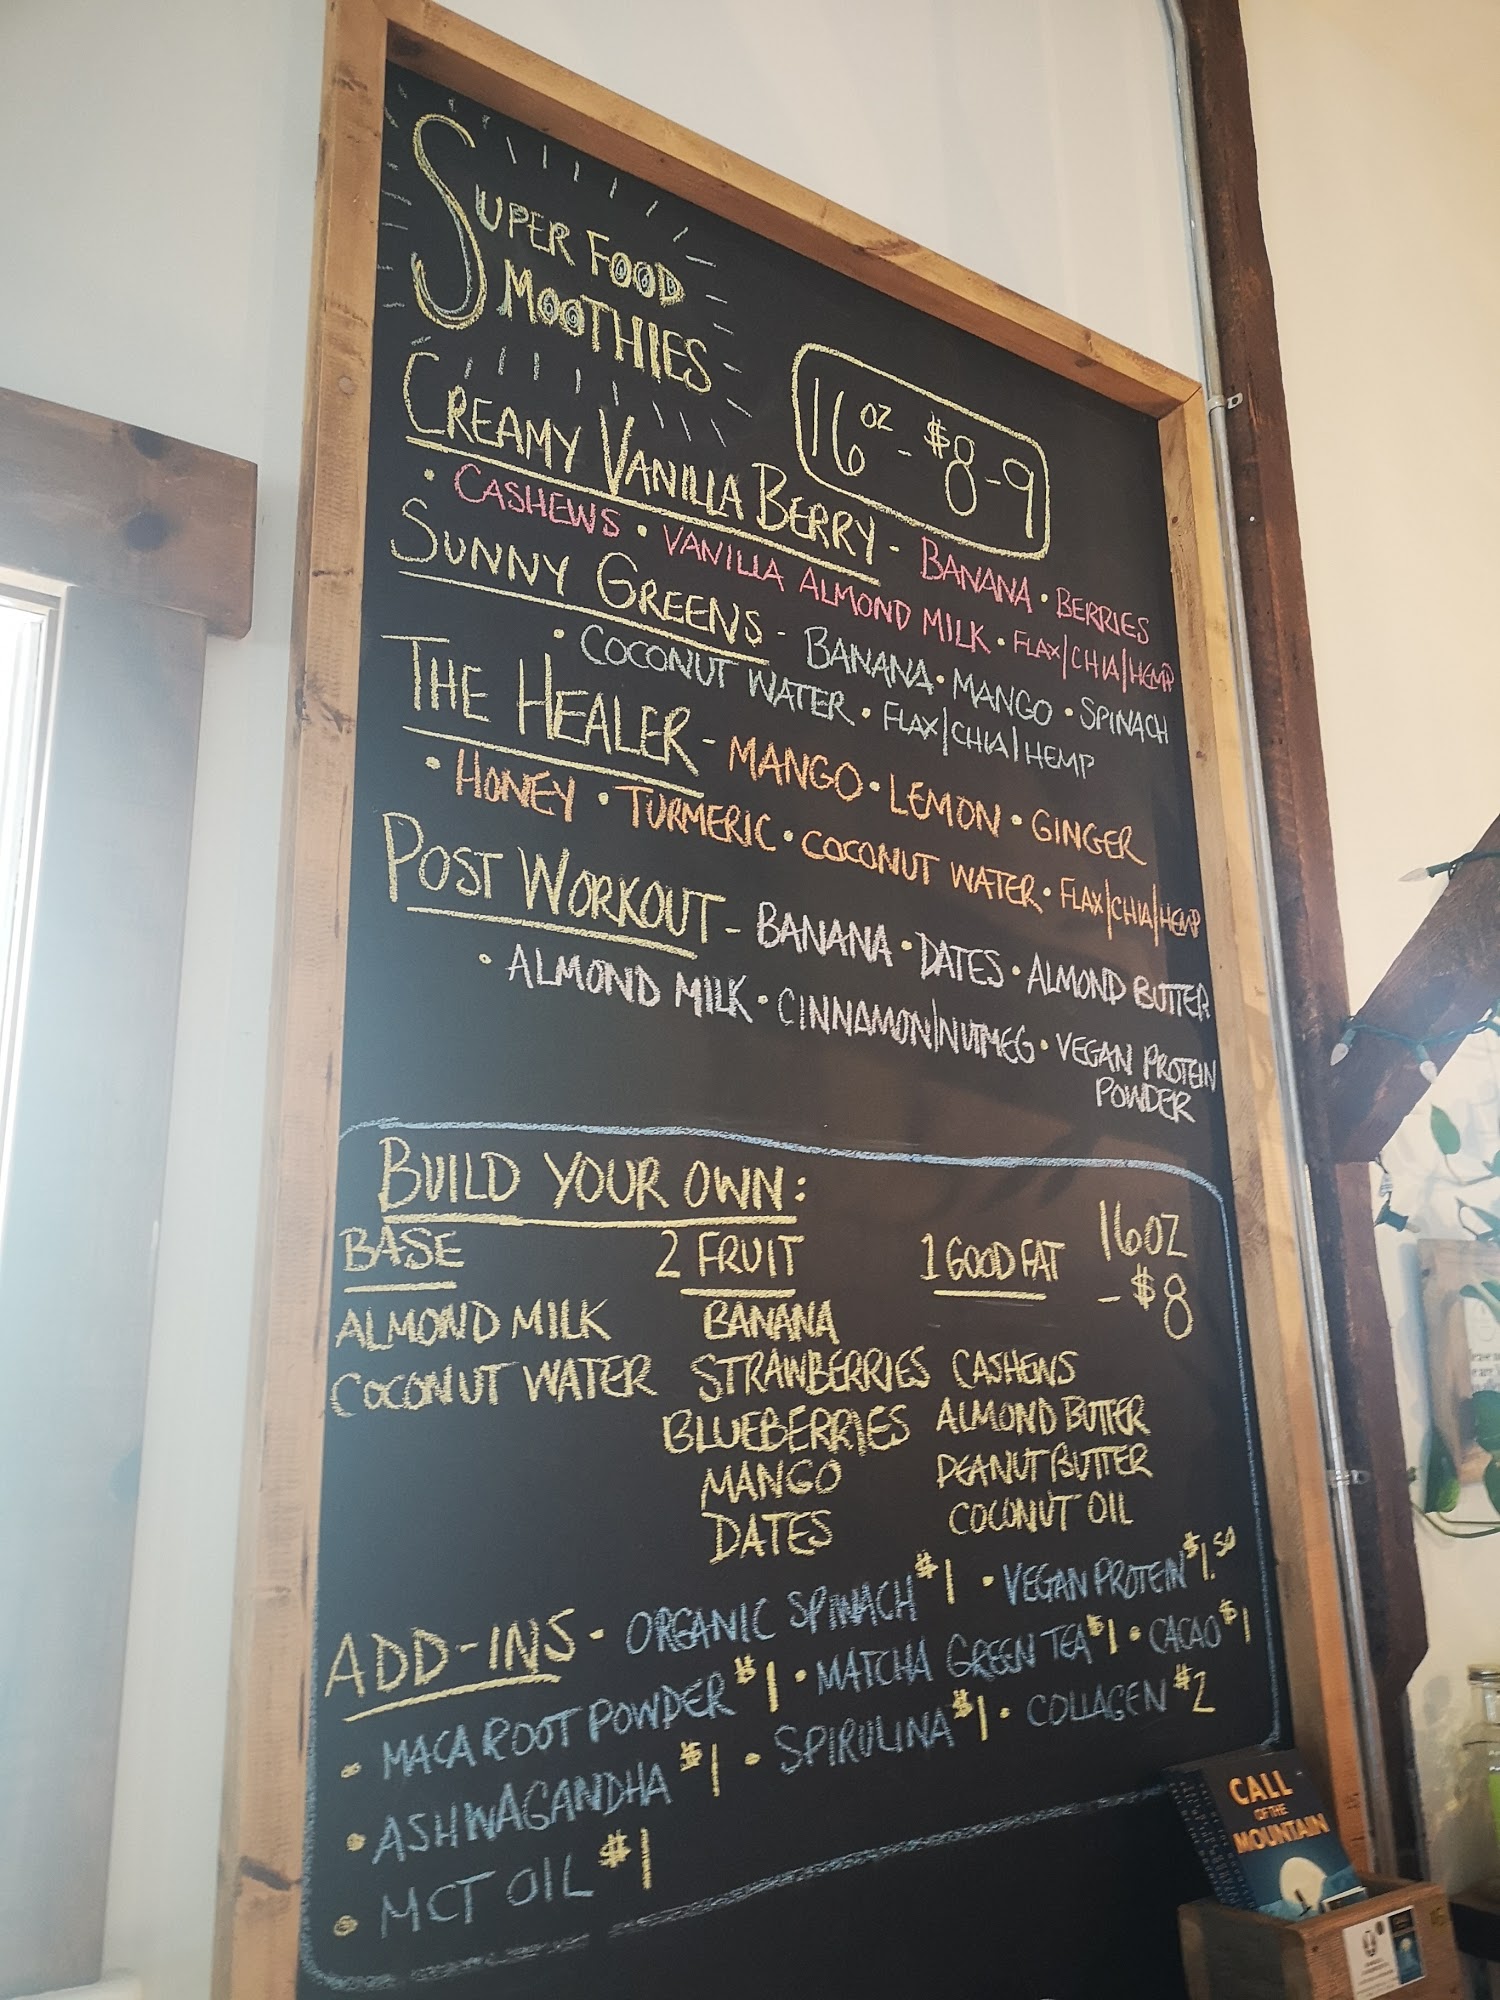 SUPER FOOD
SMOOTHIES
16oz - $8-9
CREAMY VANILLA BERRY - BANANA • BERRIES
• CASHEWS • VANILLA ALMOND MILK • FLAX/CHIA/HEMP
SUNNY GREENS - BANANA • MANGO • SPINACH
• COCONUT WATER • FLAX/CHIA/HEMP
THE HEALER - MANGO • LEMON • GINGER
• HONEY • TURMERIC • COCONUT WATER • FLAX/CHIA/HEMP
POST WORKOUT - BANANA • DATES • ALMOND BUTTER
• ALMOND MILK • CINNAMON/NUTMEG • VEGAN PROTEIN
POWDER
BUILD YOUR OWN:
16oz
- $8
BASE
ALMOND MILK
COCONUT WATER
2 FRUIT
BANANA
STRAWBERRIES
BLUEBERRIES
MANGO
DATES
1 GOOD FAT
CASHEWS
ALMOND BUTTER
PEANUT BUTTER
COCONUT OIL
ADD-INS - ORGANIC SPINACH $1 • VEGAN PROTEIN $1.50
• MACA ROOT POWDER $1 • MATCHA GREEN TEA $1 • CACAO $1
• ASHWAGANDHA $1 • SPIRULINA $1 • COLLAGEN $2
• MCT OIL $1
CALL
OF THE
MOUNTAIN